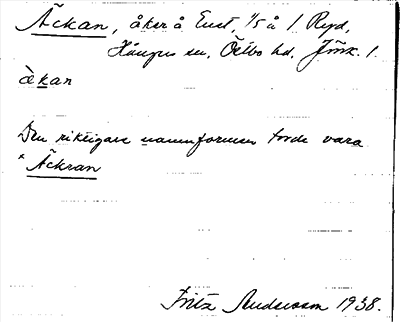 Äckan, åker å Eust, 1/5 å 1 Ryd,
Kångus sn, Östbo hd, Jönk. l.
àkan
Den riktigare namnformen torde vara
* Äckran
Fritz Andersson 1938.